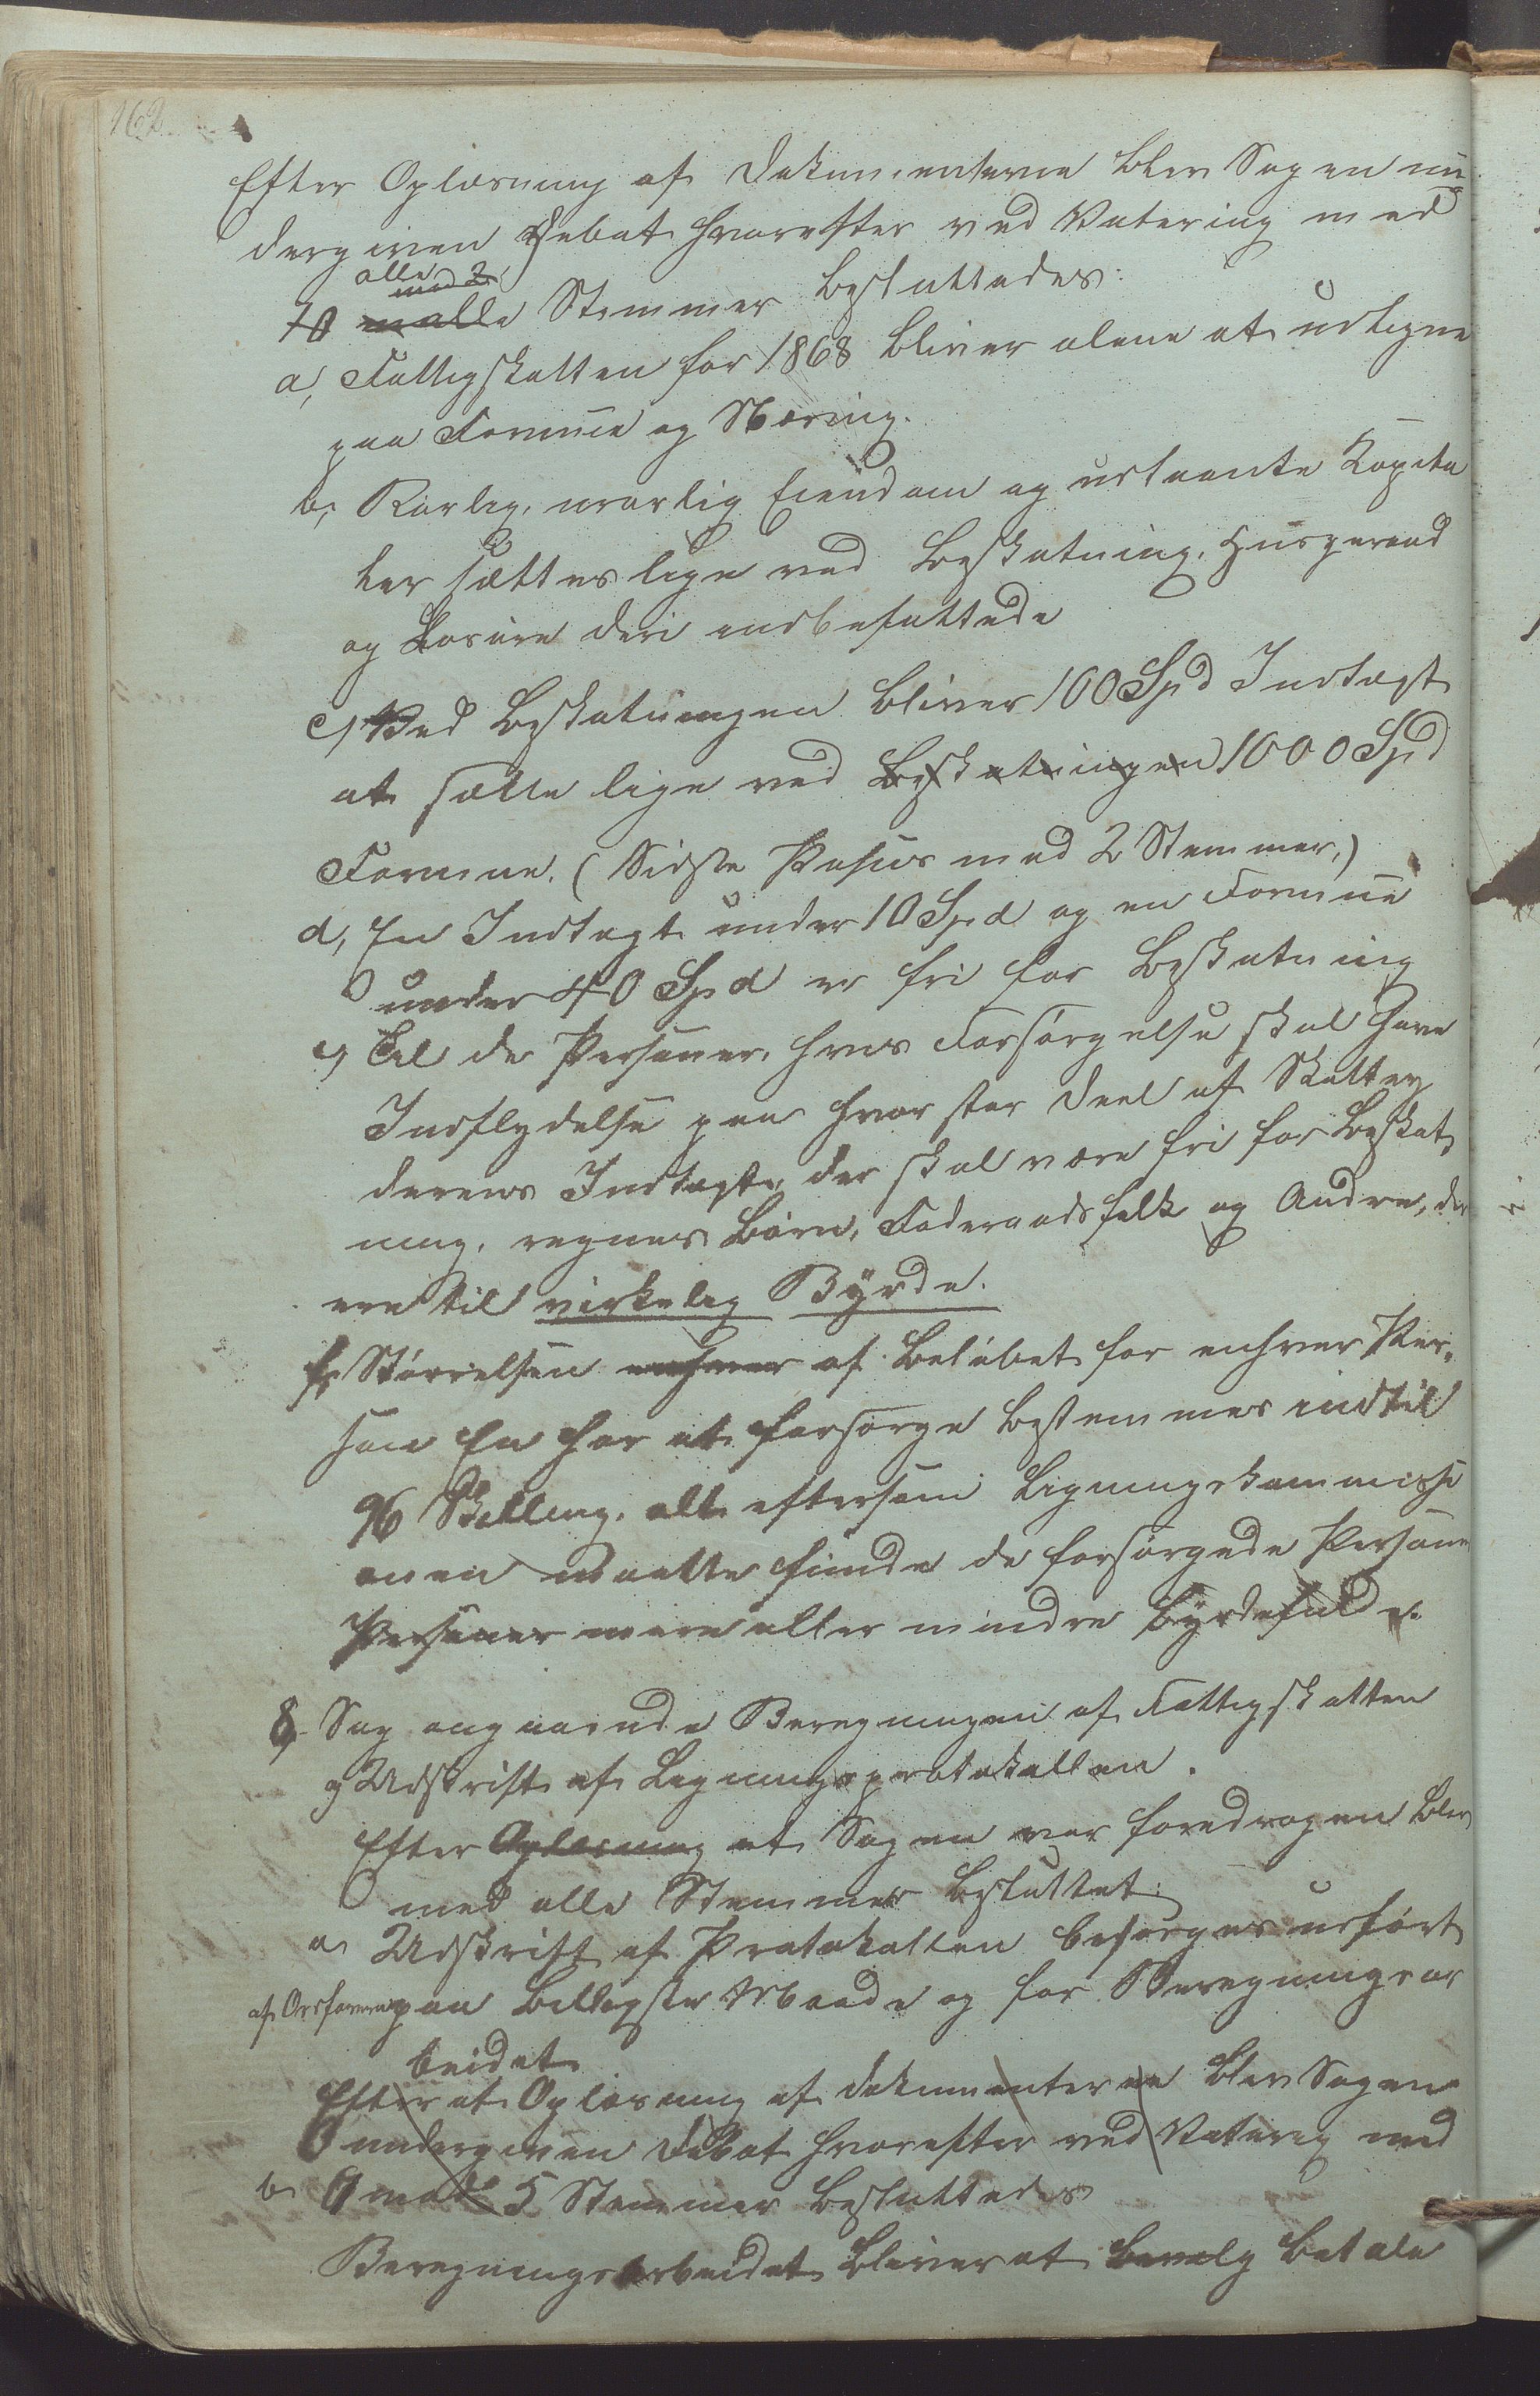 162
Efter Oplæsning af Dokumenterne blev Sagen un
dergiven Debat hvorefter ved Votering med
alle
med 2
10 m alle Stemmer besluttedes:
a, Fattigskatten for 1868 bliver alene at udligne
paa Formue og Næring.
b, Rørlig, urørlig Eiendom og udlaante Kapita
ler sættes lige ved Beskatning, Husgeraad
og Løsøre deri indbefattede
c, Ved Beskatningen bliver 100 Spd Indtægt
at sætte lige ved Beskatningen 1000 Spd
Formue. (Sidste Passus med 2 Stemmer,)
d, En Indtægt under 10 Spd og en Formue
under 40 Spd er fri for Beskatning
e, Til de Personer, hvis Forsørgelse skal have
Indflydelse paa hvor stor Deel af Skattey
derens Indtægt, der skal være fri for Beskat
ning, regnes Børn, Føderaadsfolk og Andre, der
ere til virkelig Byrde.
f, Størrelsen enhver af Beløbet for enhver Per-
son En har at forsørge bestemmes indtil
96 Skilling, alt eftersom Ligningskommissi
onen maatte finde de forsørgede Persone
Personer mere eller mindre byrdefulde.
8, Sag angaaende Beregningen af Fattigskatten
og Udskrift af Ligningsprotokollen.
Efter Oplæsning at Sagen var foredragen blev
med alle Stemmer besluttet:
a, Udskrift af Protokollen besørges udført
af Ordføreren paa billigste Maade og for Beregningsar
beidet
Efter at Oplæsning af Dokumenterne blev Sagen
undergiven Debat hvorefter ved Votering med
b, 9 mod 5 Stemmer besluttedes
Beregningsarbeidet bliver at bevilg betale